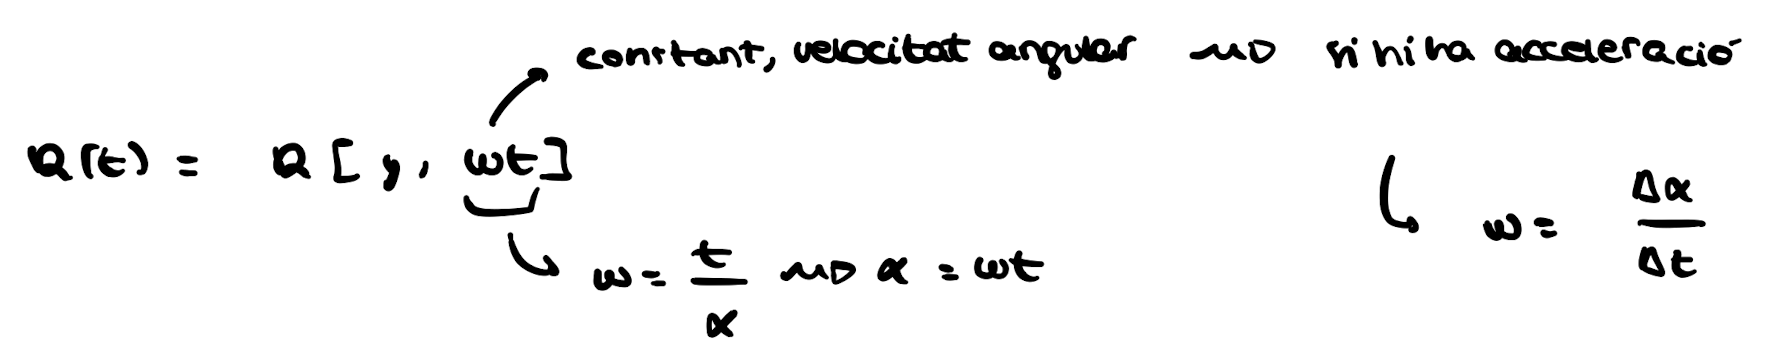 constant, velocitat angular ⇝ si hi ha acceleració
R(t) = R [ y, ωt ]
ω = Δα / Δt
ω = t / α ⇝ α = ωt